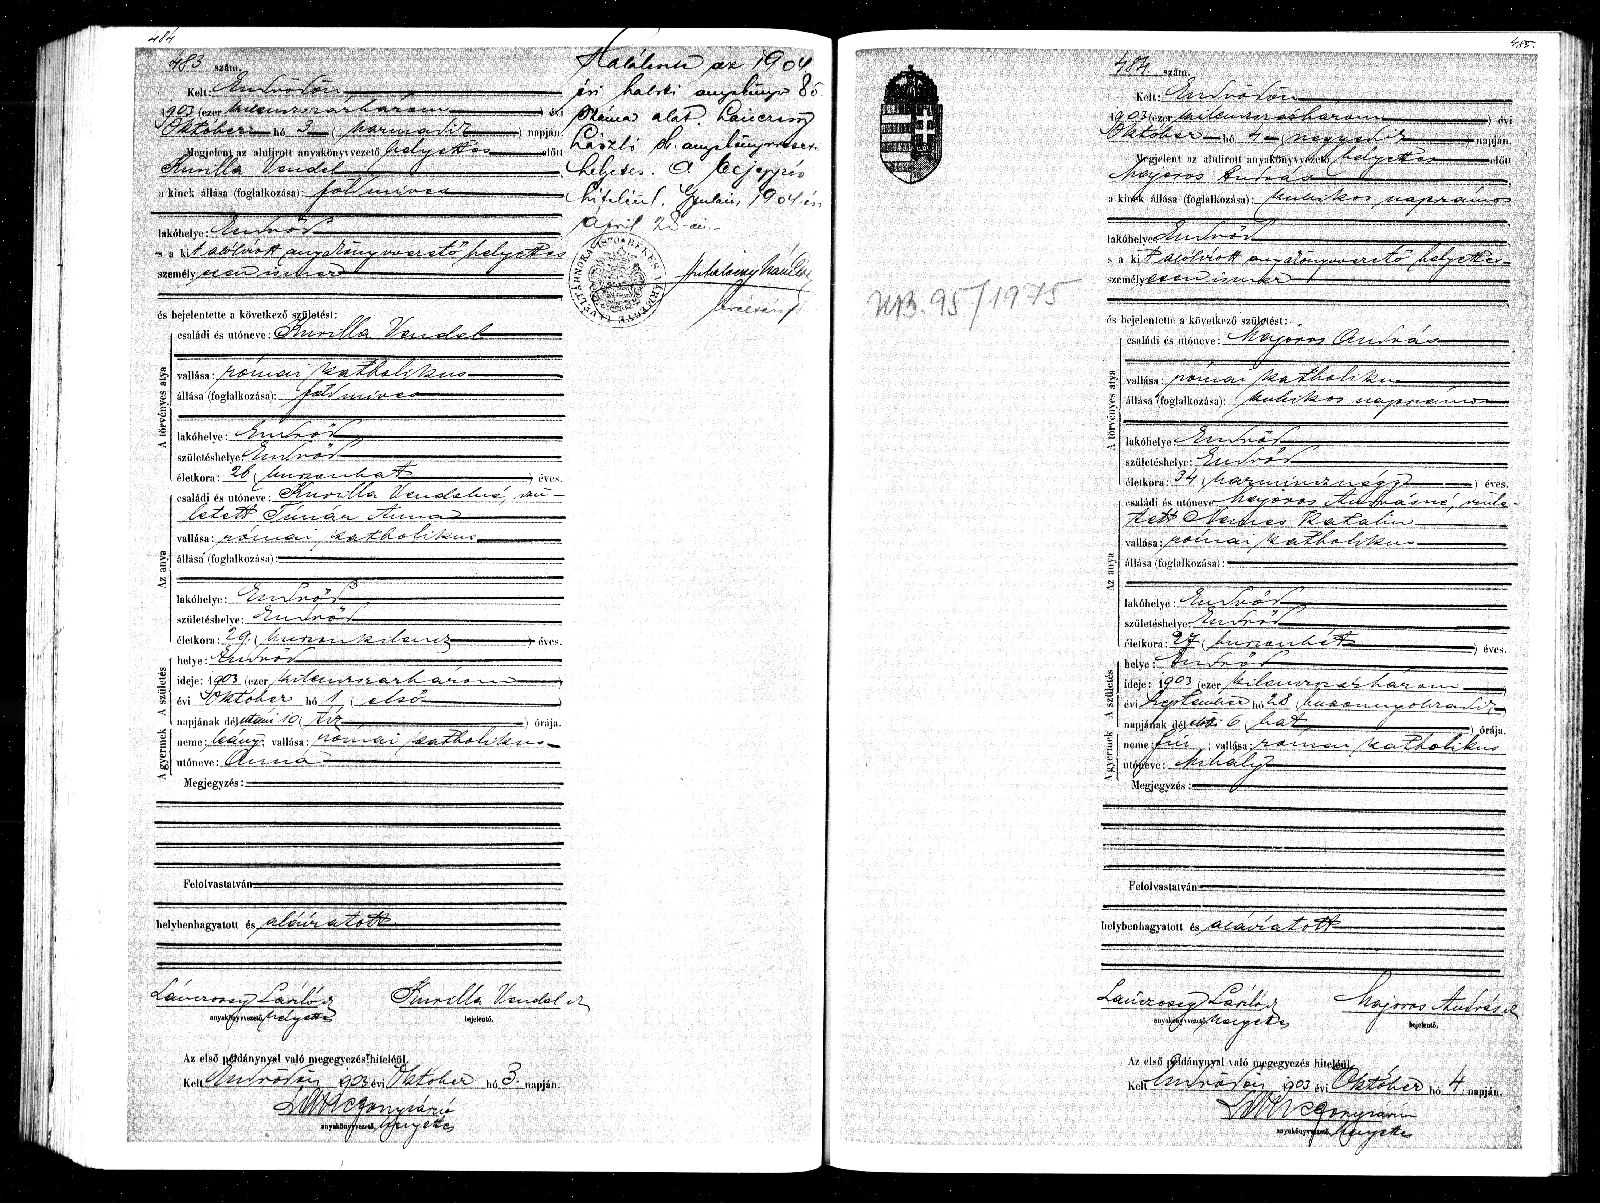 484
483 szám.
Kelt: Endrődön
1903 (ezer kilenczszázhárom) évi
Október hó 3 (harmadik) napján.
Megjelent az alulirott anyakönyvvezető helyettes előtt
Kurilla Vendel
a kinek állása (foglalkozása): földmives
lakóhelye: Endrőd
s a kit alólirott anyakönyvvezető helyettes
személyesen ismer
és bejelentette a következő születést:
A törvényes atya
családi és utóneve: Kurilla Vendel
vallása: római katholikus
állása (foglalkozása): földmives
lakóhelye: Endrőd
születéshelye: Endrőd
életkora: 26 (huszonhat) éves.
Az anya
családi és utóneve: Kurilla Vendelné, szü-
letett Timár Anna
vallása: római katholikus
állása (foglalkozása):
lakóhelye: Endrőd
születéshelye: Endrőd
életkora: 29 (huszonkilencz) éves.
A gyermek A születés
helye: Endrőd
ideje: 1903 (ezer kilenczszázhárom)
évi Október hó 1 (első)
napjának délutáni 10 (tiz) órája.
neme: leány; vallása: római katholikus
utóneve: Anna
Megjegyzés:
Felolvastatván
helybenhagyatott és aláiratott
László
anyakönyvvezető helyettes
Kurilla Vendel
bejelentő.
Az első példánynyal való megegyezés hiteléül.
Kelt Endrődön 1903 évi Október hó 3. napján.
anyakönyvvezető helyettes
Halálozott az 1904
évi halotti anyakönyv 86
száma alatt.
László h. anyakönyvvezető
helyettes. A bejegyzés
hiteléül. Gyulán, 1904 évi
április 28-án.
485.
484 szám.
Kelt: Endrődön
1903 (ezer kilenczszázhárom) évi
Október hó 4 (negyedik) napján.
Megjelent az alulirott anyakönyvvezető helyettes előtt
Majoros András
a kinek állása (foglalkozása): kubikos napszámos
lakóhelye: Endrőd
s a kit alólirott anyakönyvvezető helyettes
személyesen ismer
NB. 95/1975
és bejelentette a következő születést:
A törvényes atya
családi és utóneve: Majoros András
vallása: római katholikus
állása (foglalkozása): kubikos napszámos
lakóhelye: Endrőd
születéshelye: Endrőd
életkora: 34 (harmincznégy) éves.
Az anya
családi és utóneve: Majoros Andrásné, szüle-
tett Nemes Katalin
vallása: római katholikus
állása (foglalkozása):
lakóhelye: Endrőd
születéshelye: Endrőd
életkora: 27 (huszonhét) éves.
A gyermek A születés
helye: Endrőd
ideje: 1903 (ezer kilenczszázhárom)
évi Szeptember hó 28 (huszonnyolczadik)
napjának délelőtti 6 (hat) órája.
neme: fiú; vallása: római katholikus
utóneve: Mihály
Megjegyzés:
Felolvastatván
helybenhagyatott és aláiratott
László
anyakönyvvezető helyettes
Majoros András
bejelentő.
Az első példánynyal való megegyezés hiteléül.
Kelt Endrődön 1903 évi Október hó 4 napján.
anyakönyvvezető helyettes